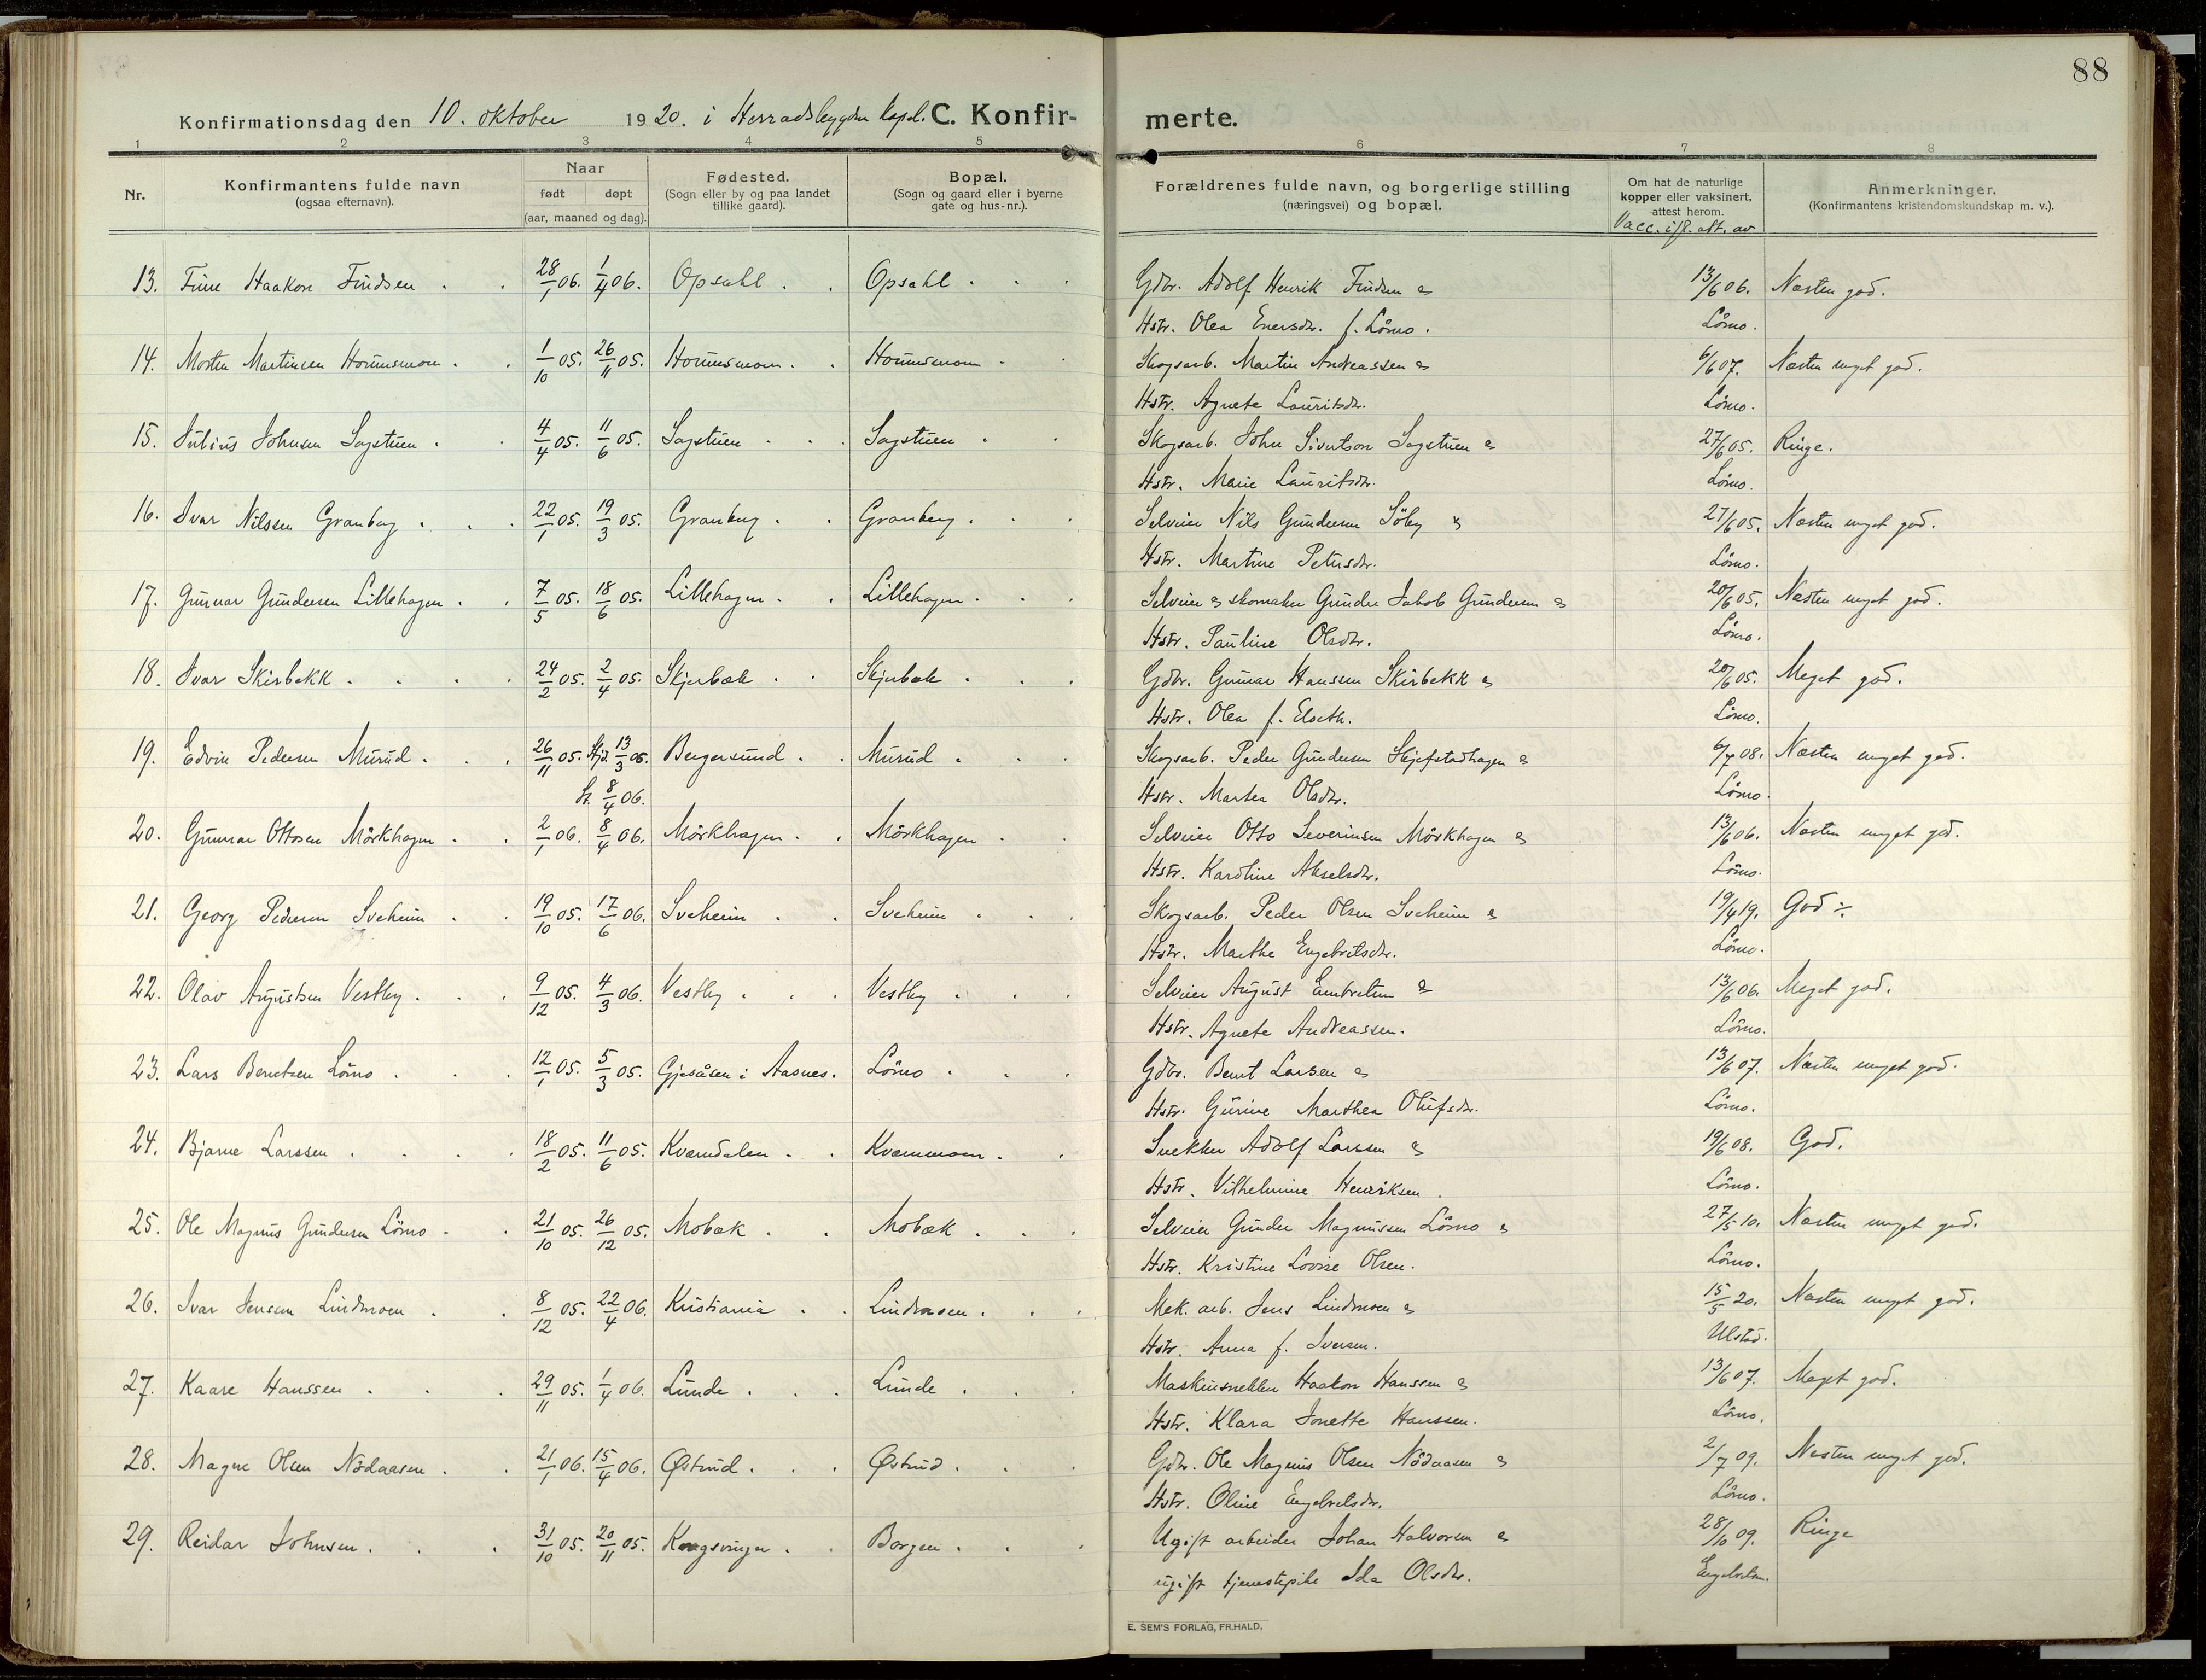 88
Konfirmationsdag den 10. oktober 1920. i Herradsbygden kapel. C. Konfir-merte.
1 2 3 4 5 6 7 8
Nr.
Konfirmantens fulde navn
(ogsaa efternavn).
Naar
født døpt
(aar, maaned og dag).
Fødested.
(Sogn eller by og paa landet
tillike gaard).
Bopæl.
(Sogn og gaard eller i byerne
gate og hus-nr.).
Forældrenes fulde navn, og borgerlige stilling
(næringsvei) og bopæl.
Om hat de naturlige
kopper eller vaksinert,
attest herom.
Vacc. ifl. att. av
Anmerkninger.
(Konfirmantens kristendomskundskap m. v.).
13. Haakon Findsen 28/1 06. 1/4 06. Opsahl Opsahl Gdbr. Adolf Henrik Findsen & 13/6 06. Næsten god.
Hstr. Olea Enersdr. f. Lömo. Lömo.
14. Morten Martinsen Hornsmoen 1/10 05. 26/11 05. Hornsmoen Hornsmoen Skogsarb. Martin Andreassen & 6/6 07. Næsten meget god.
Hstr. Agnete Lauritsdr. Lömo.
15. Julius Johnsen Sagstuen 4/4 05. 11/6 05. Sagstuen Sagstuen Skogsarb. John Sivertson Sagstuen & 27/6 05. Ringe.
Hstr. Marie Lauritsdr. Lömo.
16. Ivar Nilssen Granberg 22/1 05. 19/3 05. Granberg Granberg Selveier Nils Gundersen Söby & 27/6 05. Næsten meget god.
Hstr. Martine Petersdr. Lömo.
17. Gunnar Gundersen Lillehagen 7/5 05. 18/6 05. Lillehagen Lillehagen Selveier & skomaker Gunder Jakob Gundersen & 20/6 05. Næsten meget god.
Hstr. Pauline Olsdr. Lömo.
18. Ivar Skirbekk 24/2 05. 2/4 05. Skjerbæk Skjerbæk Gdbr. Gunnar Hanssen Skirbekk & 20/6 05. Meget god.
Hstr. Olea f. Elseth. Lömo.
19. Edvin Pedersen Murud 26/11 05. Hjd. 13/3 06. Bergersund Murud Skogsarb. Peder Gundersen Skjefstadhagen & 6/7 08. Næsten meget god.
St. 8/4 06. Hstr. Martea Olsdr. Lömo.
20. Gunnar Ottosen Mörkhagen 2/1 06. 8/4 06. Mörkhagen Mörkhagen Selveier Otto Severinsen Mörkhagen & 13/6 06. Næsten meget god.
Hstr. Karoline Akselsdr. Lömo.
21. Georg Pedersen Sveheim 19/10 05. 17/6 06. Sveheim Sveheim Skogsarb. Peder Olsen Sveheim & 19/4 19. God ÷
Hstr. Marthe Engebretsdr. Lömo.
22. Olav Augustsen Vestby 9/12 05. 4/3 06. Vestby Vestby Selveier August Embretsen & 13/6 06. Meget god.
Hstr. Agnete Andreassen. Lömo.
23. Lars Berntsen Lömo 12/1 05. 5/3 05. Gjesåsen i Aasnes. Lömo Gdbr. Bernt Larsen & 13/6 07. Næsten meget god.
Hstr. Gurine Marthea Olufsdr. Lömo.
24. Bjarne Larssen 18/2 05. 11/6 05. Kværndalen Kvernmoen Snekker Adolf Larssen & 19/6 08. God.
Hstr. Vilhelmine Henriksen. Lömo.
25. Ole Magnus Gundersen Lömo 21/10 05. 26/12 05. Mobæk Mobæk Selveier Gunder Magnussen Lömo & 27/5 10. Næsten meget god.
Hstr. Kristine Lovise Olsen. Lömo.
26. Ivar Jensen Lindmoen 8/12 05. 22/4 06. Kristiania Lindmoen Mek. arb. Jens Lindmoen & 15/5 20. Næsten meget god.
Hstr. Anna f. Iversen. Ulstad.
27. Kaare Hanssen 29/11 05. 1/4 06. Lunde Lunde Maskinsnekker Haakon Hanssen & 13/6 07. Meget god.
Hstr. Klara Jonette Hanssen. Lömo.
28. Magne Olsen Nödaasen 21/1 06. 15/4 06. Østrud Østrud Gdbr. Ole Magnus Olsen Nödaasen & 2/7 09. Næsten meget god.
Hstr. Oline Engebretsdr. Lömo.
29. Reidar Johnsen 31/10 05. 20/11 05. Kongsvinger Borgen Ugift arbeider Johan Halvorsen & 28/10 09. Ringe
ugift tjenestepike Ida Olsdr. Engebretsen.
E. SEM'S FORLAG, FR.HALD.